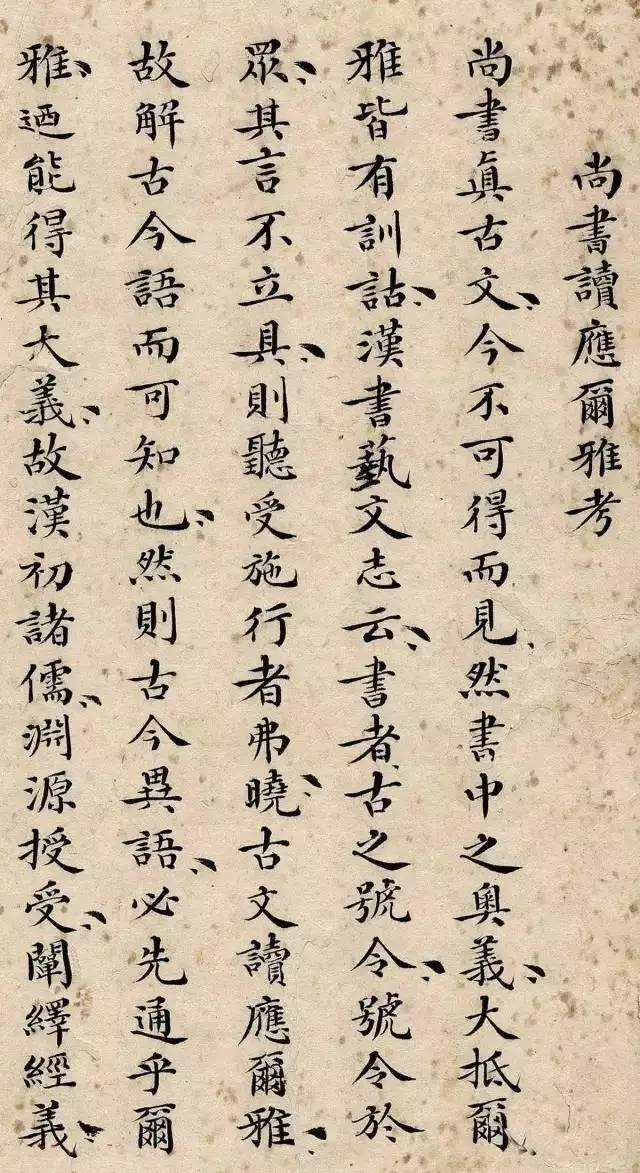 尚書讀應爾雅考
尚書真古文、今不可得而見、然書中之奧義、大抵爾
雅皆有訓詁、漢書藝文志云、書者、古之號令、號令於
眾、其言不立具、則聽受施行者弗曉、古文讀應爾雅、
故解古今語而可知也、然則古今異語、必先通乎爾
雅、迺能得其大義、故漢初諸儒、淵源授受、闡繹經義、